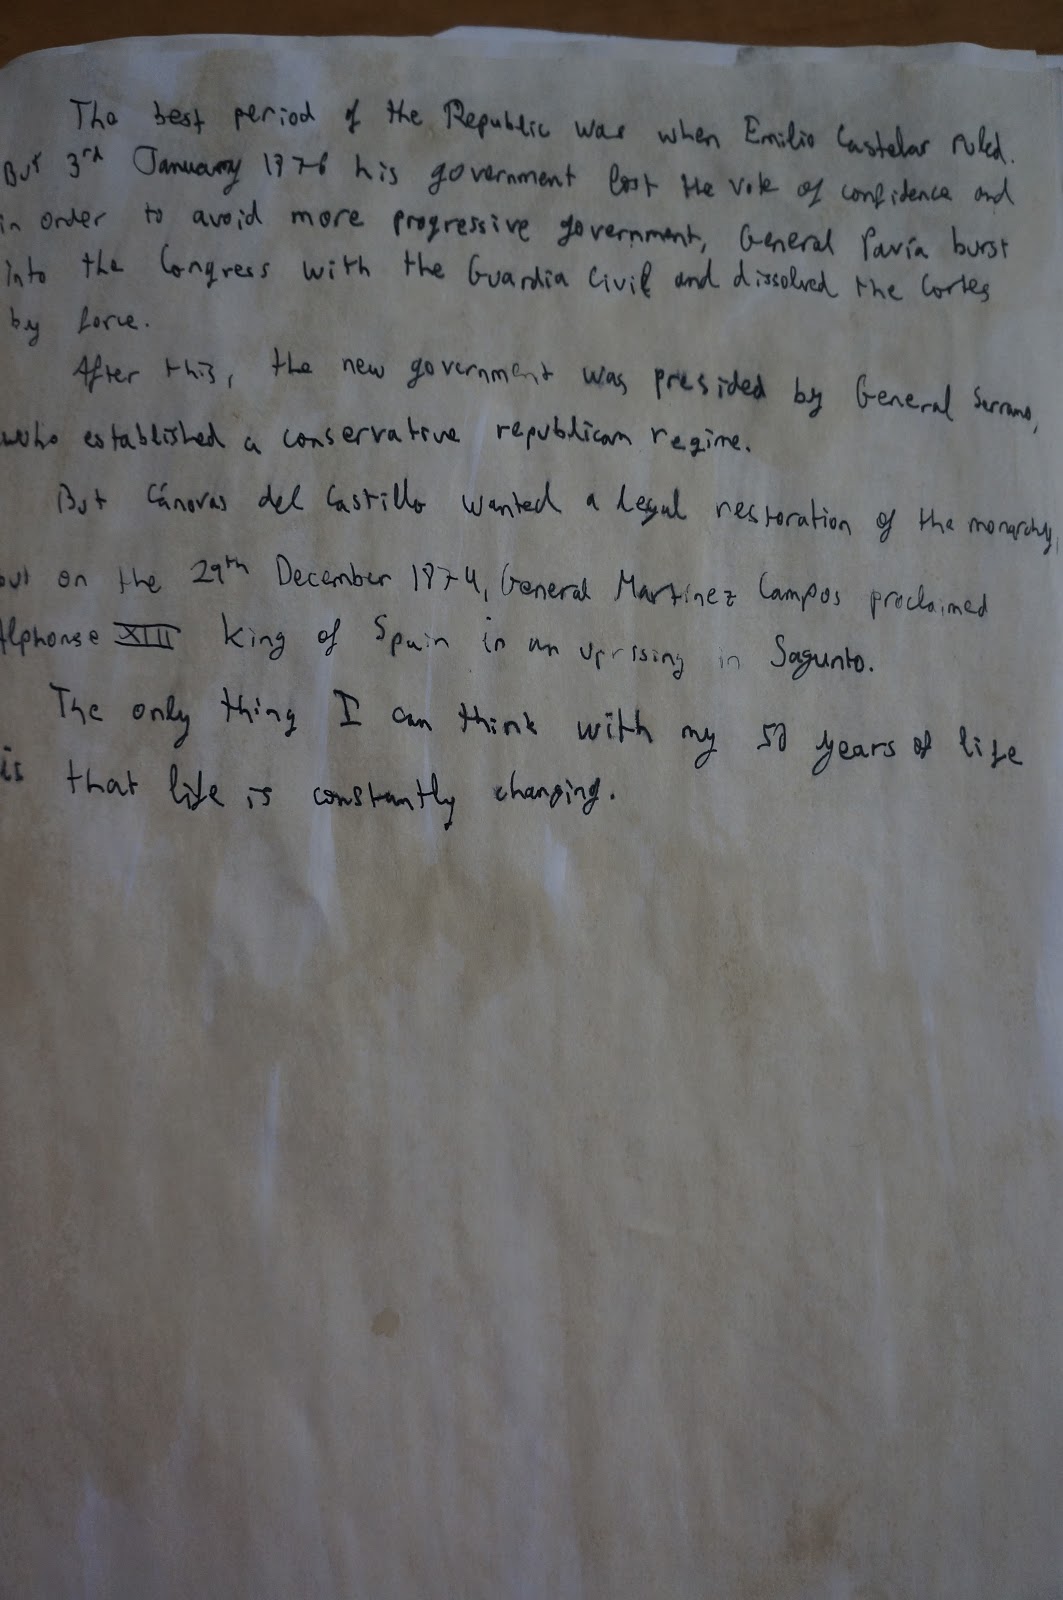 The best period of the Republic was when Emilio Castelar ruled.
But 3rd January his government lost the vote of confidence and
in order to avoid more progressive government, General Pavía burst
into the Congress with the Guardia Civil and dissolved the Cortes
by force.
After this, the new government was presided by General Serrano,
who established a conservative republican regime.
But Cánovas del Castillo wanted a legal restoration of the monarchy,
but on the 29th December 1874, General Martínez Campos proclaimed
Alphonse XIII king of Spain in an uprising in Sagunto.
The only thing I can think with my 50 years of life
is that life is constantly changing.